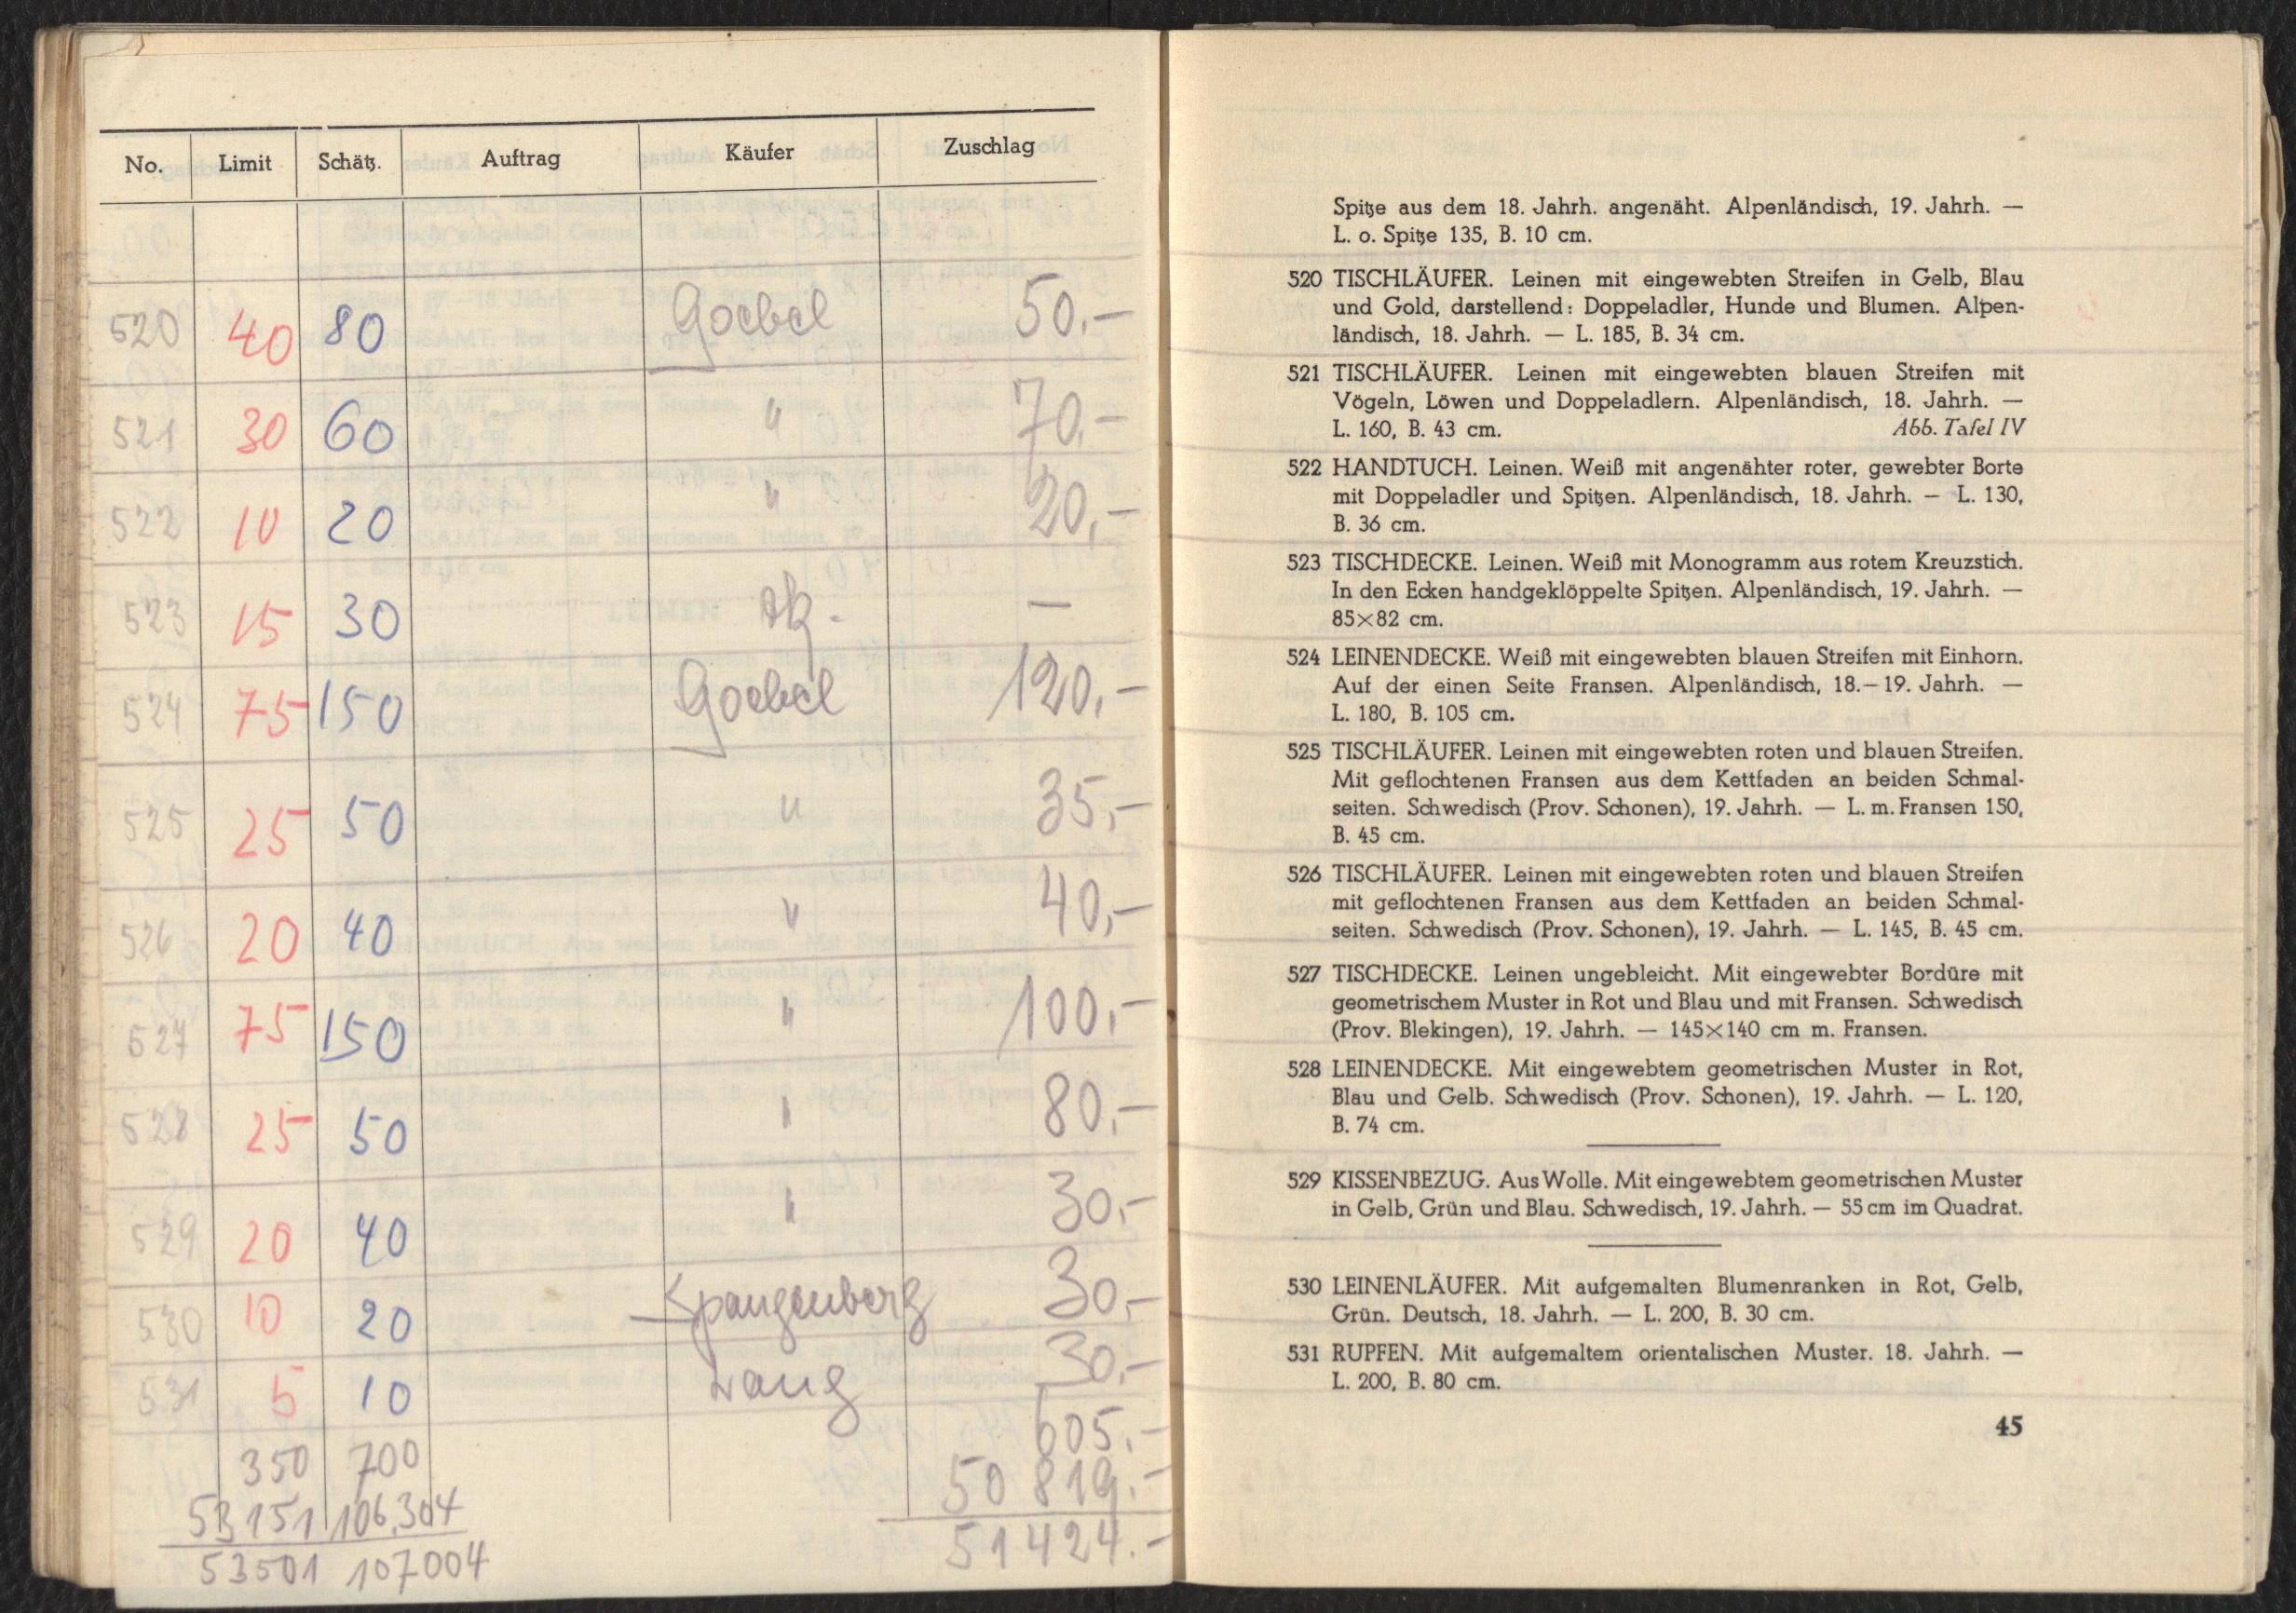 No. Limit Schätz. Auftrag Käufer Zuschlag
520 40 80 Goebel 50,-
521 30 60 " 70,-
522 10 20 " 20,-
523 15 30 —
524 75 150 Goebel 120,-
525 25 50 " 35,-
526 20 40 " 40,-
527 75 150 " 100,-
528 25 50 " 80,-
529 20 40 " 30,-
530 10 20 Spangenberg 30,-
531 5 10 Lang 30,-
350 700 605.-
53151 106.304 50819.-
53501 107004 51424.-
Spitze aus dem 18. Jahrh. angenäht. Alpenländisch, 19. Jahrh. —
L. o. Spitze 135, B. 10 cm.
520 TISCHLÄUFER. Leinen mit eingewebten Streifen in Gelb, Blau
und Gold, darstellend: Doppeladler, Hunde und Blumen. Alpen-
ländisch, 18. Jahrh. — L. 185, B. 34 cm.
521 TISCHLÄUFER. Leinen mit eingewebten blauen Streifen mit
Vögeln, Löwen und Doppeladlern. Alpenländisch, 18. Jahrh. —
L. 160, B. 43 cm. Abb. Tafel IV
522 HANDTUCH. Leinen. Weiß mit angenähter roter, gewebter Borte
mit Doppeladler und Spitzen. Alpenländisch, 18. Jahrh. — L. 130,
B. 36 cm.
523 TISCHDECKE. Leinen. Weiß mit Monogramm aus rotem Kreuzstich.
In den Ecken handgeklöppelte Spitzen. Alpenländisch, 19. Jahrh. —
85×82 cm.
524 LEINENDECKE. Weiß mit eingewebten blauen Streifen mit Einhorn.
Auf der einen Seite Fransen. Alpenländisch, 18.—19. Jahrh. —
L. 180, B. 105 cm.
525 TISCHLÄUFER. Leinen mit eingewebten roten und blauen Streifen.
Mit geflochtenen Fransen aus dem Kettfaden an beiden Schmal-
seiten. Schwedisch (Prov. Schonen), 19. Jahrh. — L. m. Fransen 150,
B. 45 cm.
526 TISCHLÄUFER. Leinen mit eingewebten roten und blauen Streifen
mit geflochtenen Fransen aus dem Kettfaden an beiden Schmal-
seiten. Schwedisch (Prov. Schonen), 19. Jahrh. — L. 145, B. 45 cm.
527 TISCHDECKE. Leinen ungebleicht. Mit eingewebter Bordüre mit
geometrischem Muster in Rot und Blau und mit Fransen. Schwedisch
(Prov. Blekingen), 19. Jahrh. — 145×140 cm m. Fransen.
528 LEINENDECKE. Mit eingewebtem geometrischen Muster in Rot,
Blau und Gelb. Schwedisch (Prov. Schonen), 19. Jahrh. — L. 120,
B. 74 cm.
529 KISSENBEZUG. Aus Wolle. Mit eingewebtem geometrischen Muster
in Gelb, Grün und Blau. Schwedisch, 19. Jahrh. — 55 cm im Quadrat.
530 LEINENLÄUFER. Mit aufgemalten Blumenranken in Rot, Gelb,
Grün. Deutsch, 18. Jahrh. — L. 200, B. 30 cm.
531 RUPFEN. Mit aufgemaltem orientalischen Muster. 18. Jahrh. —
L. 200, B. 80 cm.
45